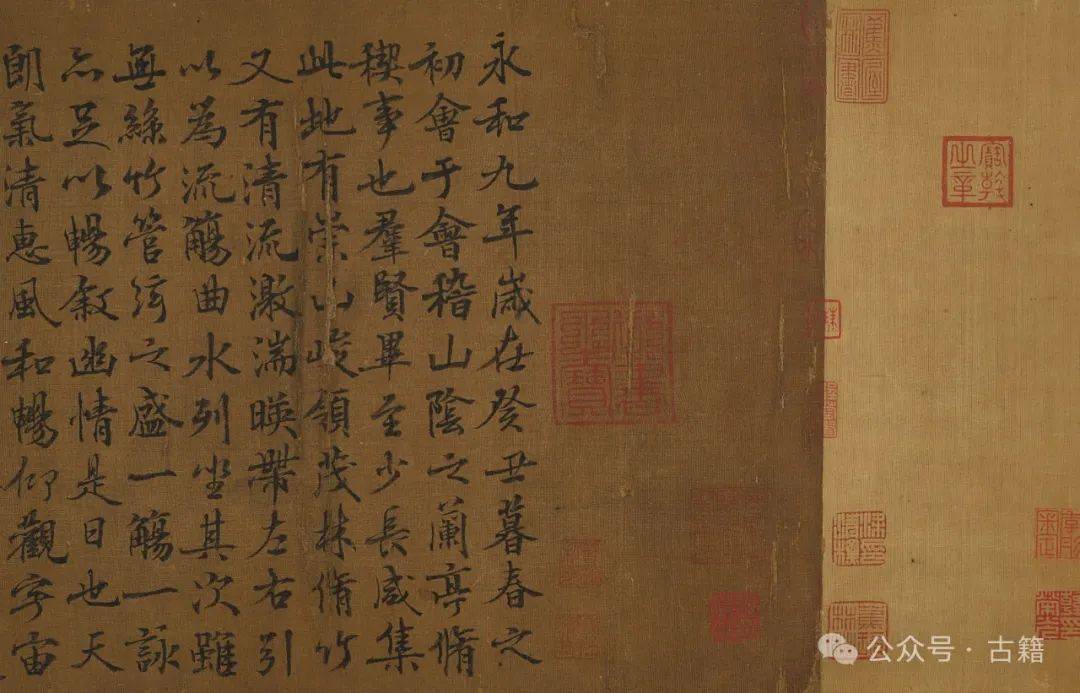 永和九年歲在癸丑暮春之
初會于會稽山陰之蘭亭脩
稧事也羣賢畢至少長咸集
此地有崇山峻領茂林脩竹
又有清流激湍暎帶左右引
以為流觴曲水列坐其次雖
無絲竹管弦之盛一觴一詠
亦足以暢敘幽情是日也天
朗氣清惠風和暢仰觀宇宙
蕉林書屋
公众号·古籍